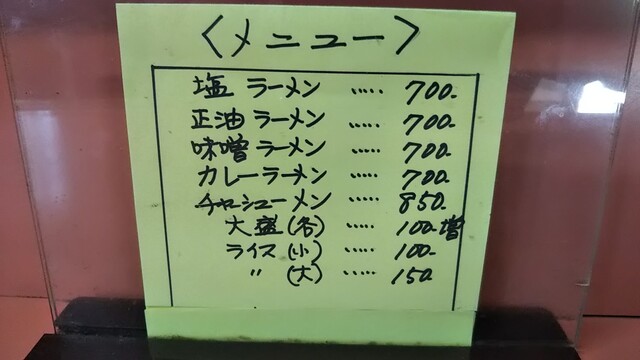 〈メニュー〉
塩ラーメン ..... 700-
正油ラーメン ..... 700-
味噌ラーメン ..... 700-
カレーラーメン ..... 700-
チャシューメン ..... 850-
大盛(各) ..... 100-増
ライス(小) ..... 100-
〃 (大) ..... 150-